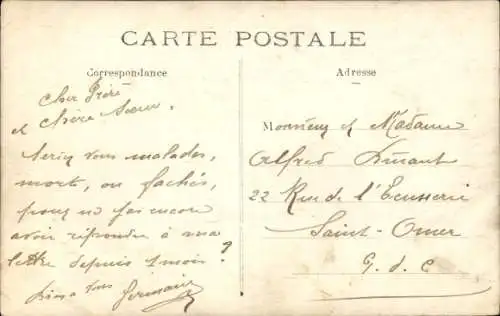 CARTE POSTALE
Correspondance
Adresse
Cher Frère
et Chère Soeur,
Seriez vous malades,
morts, ou fachés,
pour ne pas encore
avoir répondre à ma
lettre depuis 1 mois?
à vous
Germaine
Monsieur et Madame
Alfred
22 Rue de l'
Saint-Omer